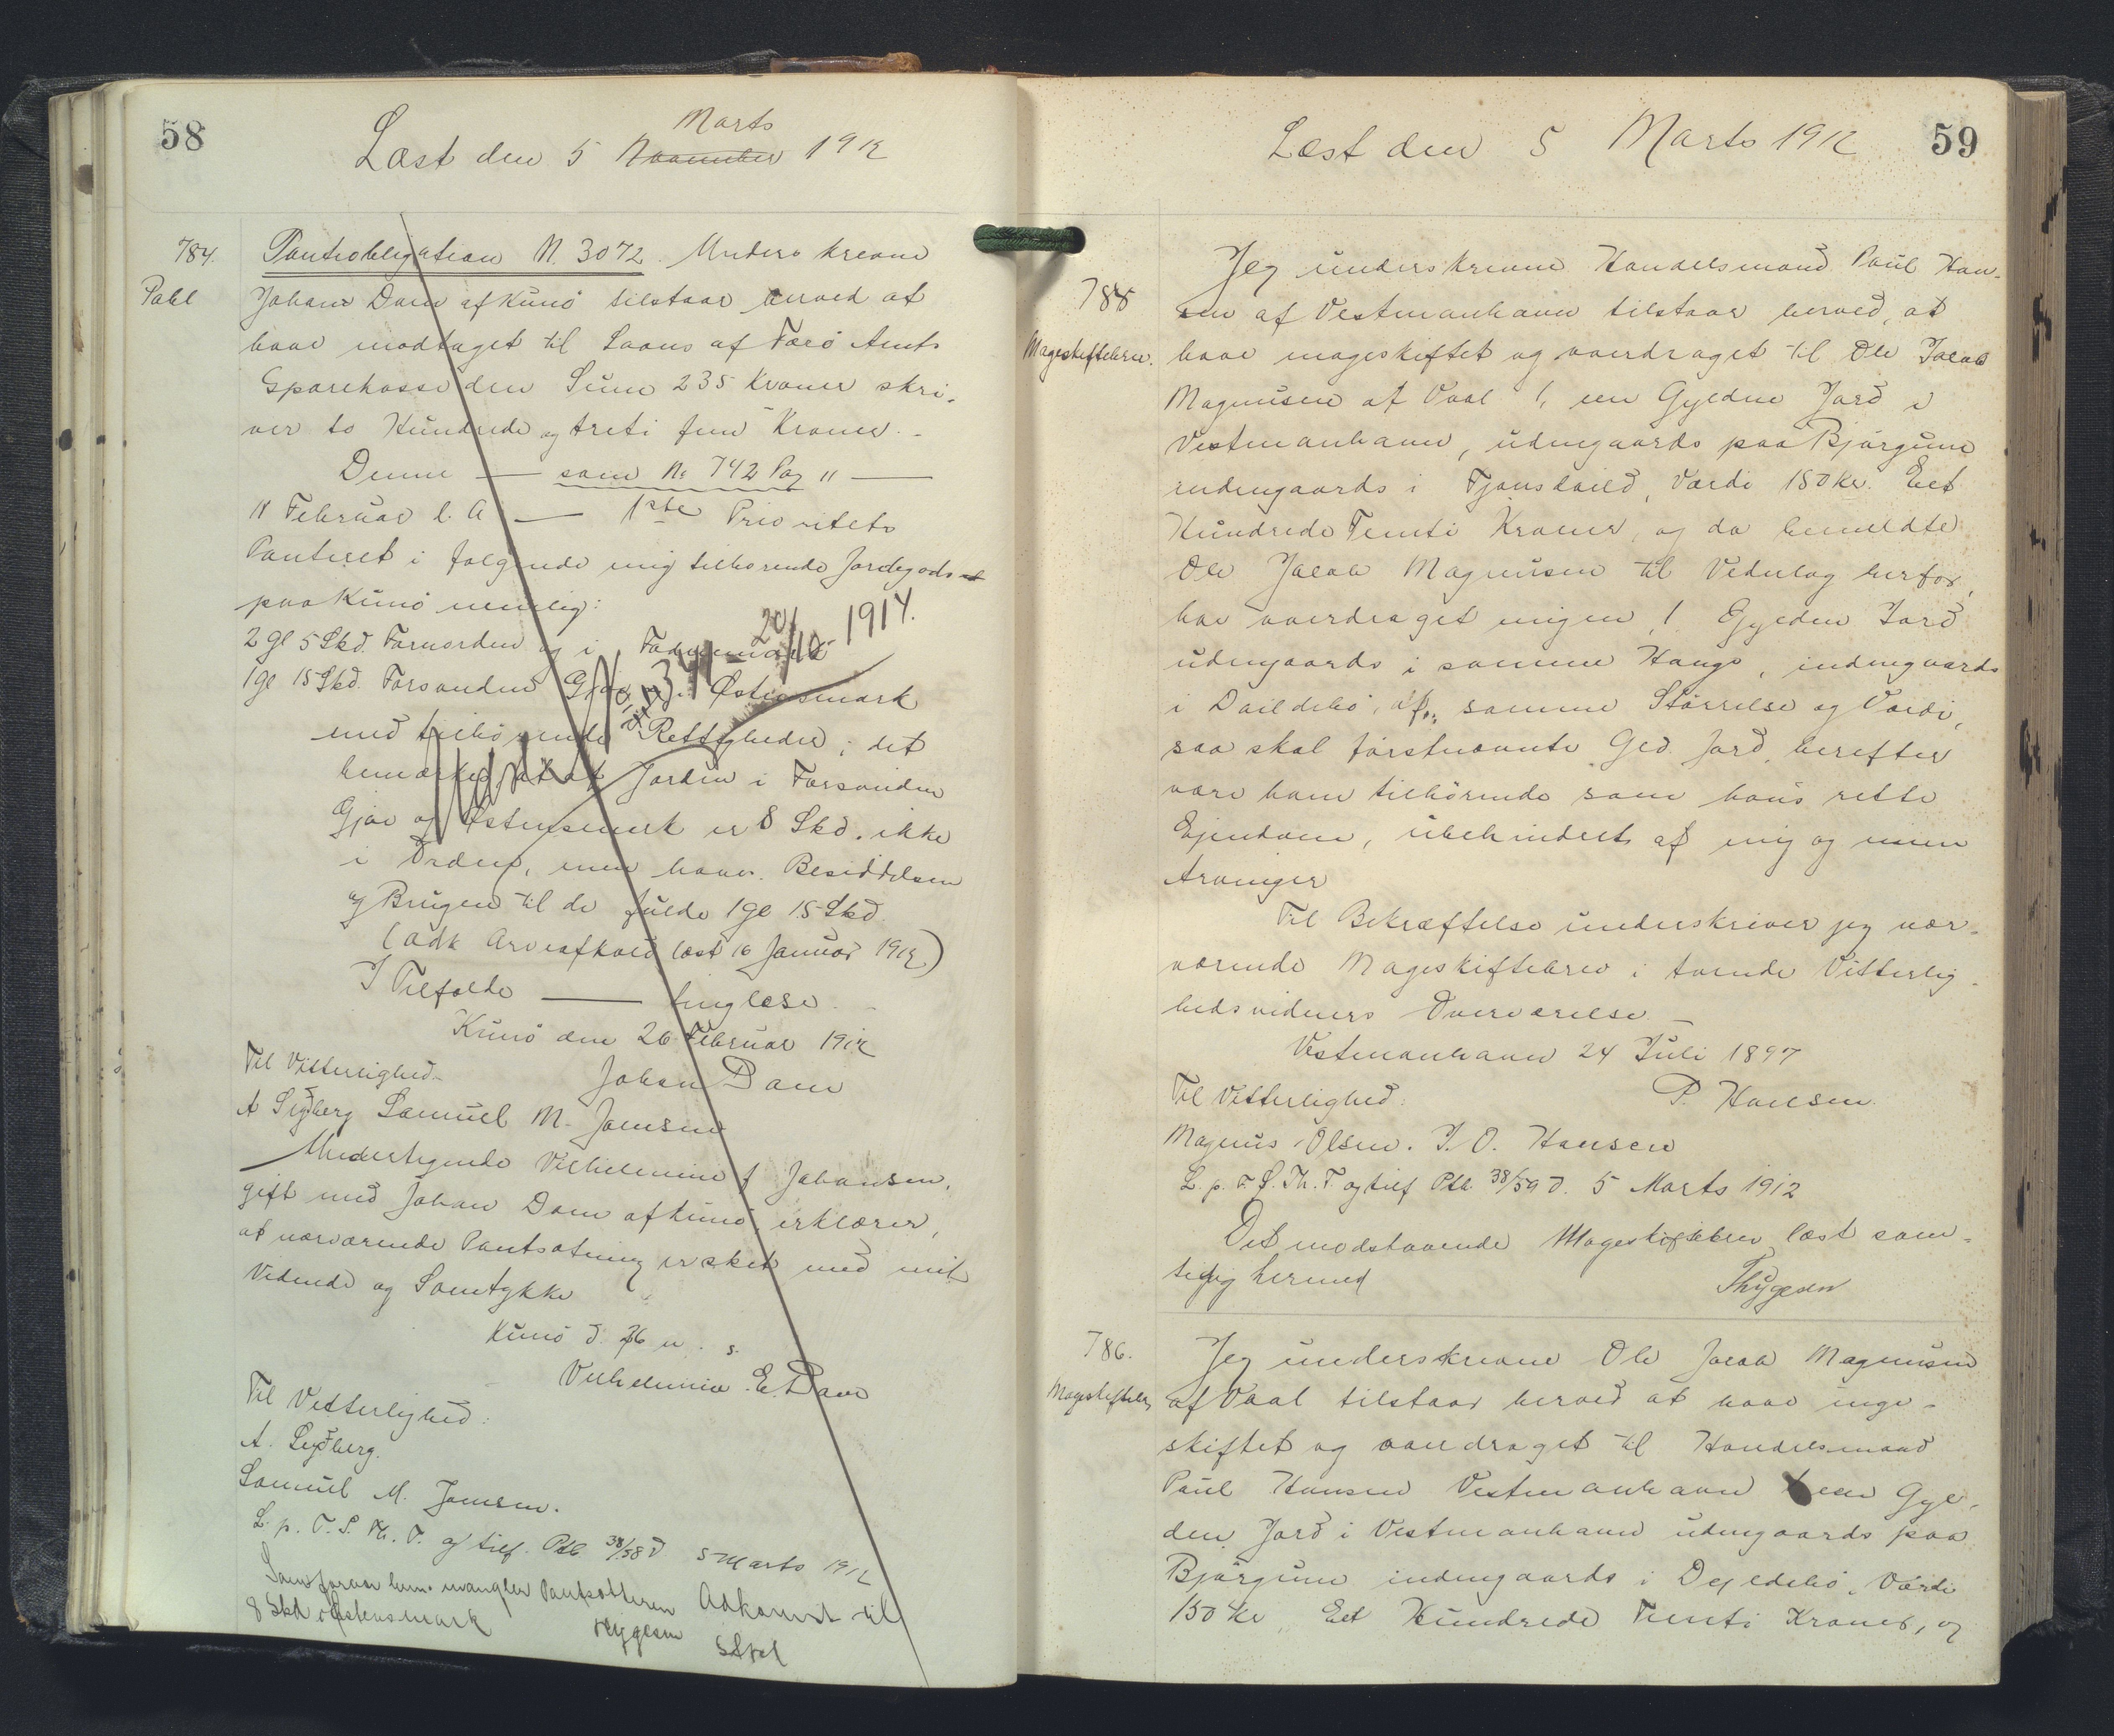 58
Læst den 5 November Marts 1912
784.
Pobl
Pantobligation N. 3072. Underskrevne
Johan Dam af Kunö tilstaar herved at
have modtaget til Laans af Færö Amts
Sparekasse den Sum 235 Kroner skri-
ver to Hundrede og treti fem Kroner.-
Denne — som No 742 Pag 11 —
11 Februar l. A — 1ste Prioritets
Panteret i følgende mig tilhørende Jordegods
paa Kunö nemlig:
2 gl 5 Skd. Fornorden og i
1 gl 15 Skd. Forsonden Gjov og i Østensmark
20/10 1914.
med tilhörende Rettigheder; det
bemærkes at af Jorden i Forsonden
Gjov og Østensmark er 8 Skd. ikke
i Orden, men haver Besiddelsen
og Brugen til de fulde 1 gl 15 Skd.
(adk Arveafkald læst 16 Januar 1912)
I Tilfælde — tinglæse.-
Kunö den 26 Februar 1912
Til Vitterlighed- Johan Dam
A Lydberg Samuel M. Joensen
Undertegnede Vilhelmine f Johansen,
gift med Johan Dam af Kunö, erklærer,
at nærværende Pantsætning er sket med mit
Vidende og Samtykke
Kunö d. 26 u. s.
Vilhelmine E. Dam
Til Vitterlighed:
A. Lydberg.
Samuel M. Joensen.
L. p. F. S. Th. F. og tilf. Ptb 38/58 d 5 Marts 1912
mangler Pantsætteren Adkomst til
8 Skd i Østensmark Thygesen
59
Læst den 5 Marts 1912
785
Mageskiftebrev.
Jeg underskrevne Handelsmand Paul Han-
sen af Vestmanhavn tilstaar herved, at
have mageskiftet og overdraget til Ole Jacob
Magnusen af Vaal 1, een Gylden Jord i
Vestmanhavn, udengaards paa Björgum
indengaards i Fjonsdeild, Værdi 150 Kr. Eet
Hundrede Femti Kroner, og da bemeldte
Ole Jacob Magnusen til Vederlag herfor,
har overdraget mig en 1 Gylden Jord
udengaards i samme Hauge, indengaards
i Deildebö, af samme Störrelse og Værdi,
saa skal förstnævnte Gld. Jord, herefter
være ham tilhörende som hans rette
Ejendom, ubehindret af mig og mine
Arvinger
Til Bekræftelse underskriver jeg nær-
værende Mageskiftebrev i tvende Vitterlig-
hedsvidners Overværelse.-
Vestmanhavn 24 Juli 1897
Til Vitterlighed: P. Hansen.
Magnus Olsen. J. O. Hansen
L. p. F. S. Th. F og tilf Ptb. 38/59 d. 5 Marts 1912
Det modstaaende Mageskiftebrev læst sam-
tidig hermed Thygesen
786.
Mageskiftebrev
Jeg underskrevne Ole Jacob Magnusen
af Vaal tilstaar herved at have mage-
skiftet og overdraget til Handelsmand
Paul Hansen Vestmanhavn een Gyl-
den Jord i Vestmanhavn udengaards paa
Björgum indengaards i Dejldebö. Værdi
150 Kr Eet Hundrede Femti Kroner, og